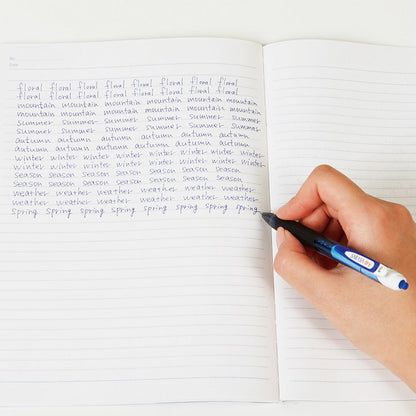 No.
Date
floral floral floral floral floral floral floral floral
floral floral floral floral floral floral floral floral
mountain mountain mountain mountain mountain mountain
mountain mountain mountain mountain mountain mountain
summer summer summer summer summer summer
summer summer summer summer summer summer
autumn autumn autumn autumn autumn autumn
autumn autumn autumn autumn autumn autumn
winter winter winter winter winter winter winter winter
winter winter winter winter winter winter winter winter
season season season season season season season
season season season season season season season
weather weather weather weather weather weather
weather weather weather weather weather weather
spring spring spring spring spring spring spring spring